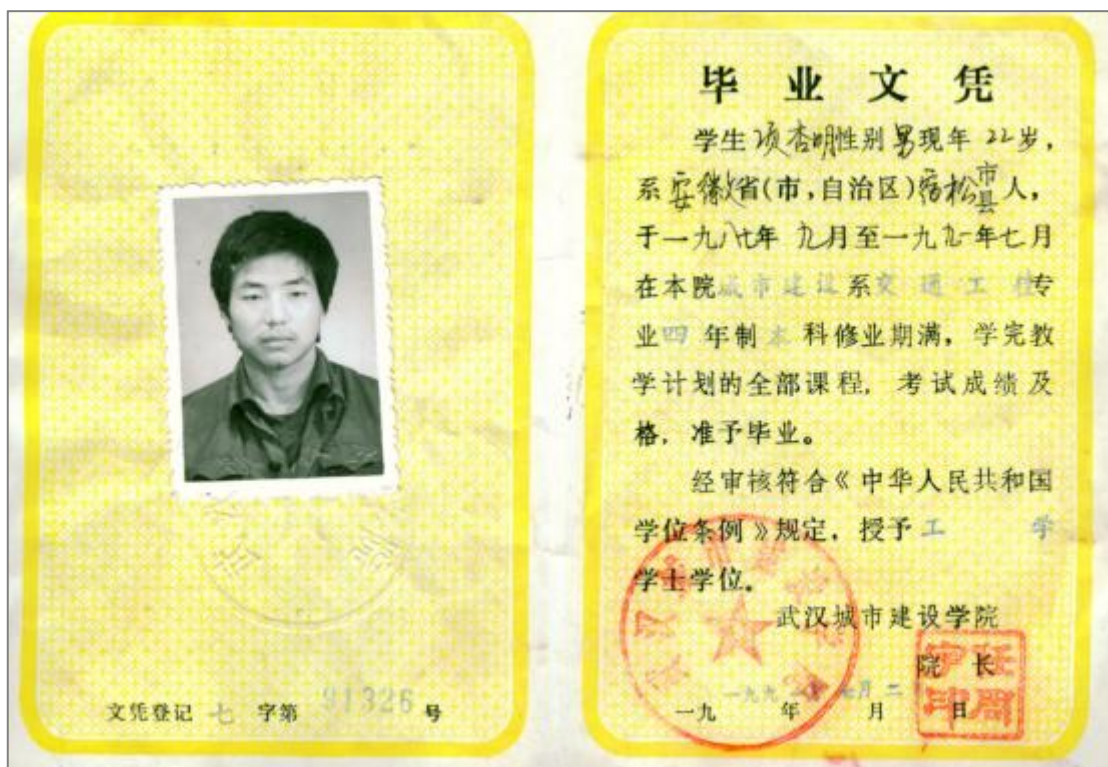 文凭登记 七 字第 91326 号
毕业文凭
学生项杏明性别男现年22岁,
系安徽省(市,自治区)宿松市县人,
于一九八七年九月至一九九一年七月
在本院城市建设系交通工程专
业四年制本科修业期满,学完教
学计划的全部课程,考试成绩及
格,准予毕业。
经审核符合《中华人民共和国
学位条例》规定,授予工 学
学士学位。
武汉城市建设学院
院 长
一九 年 月 日